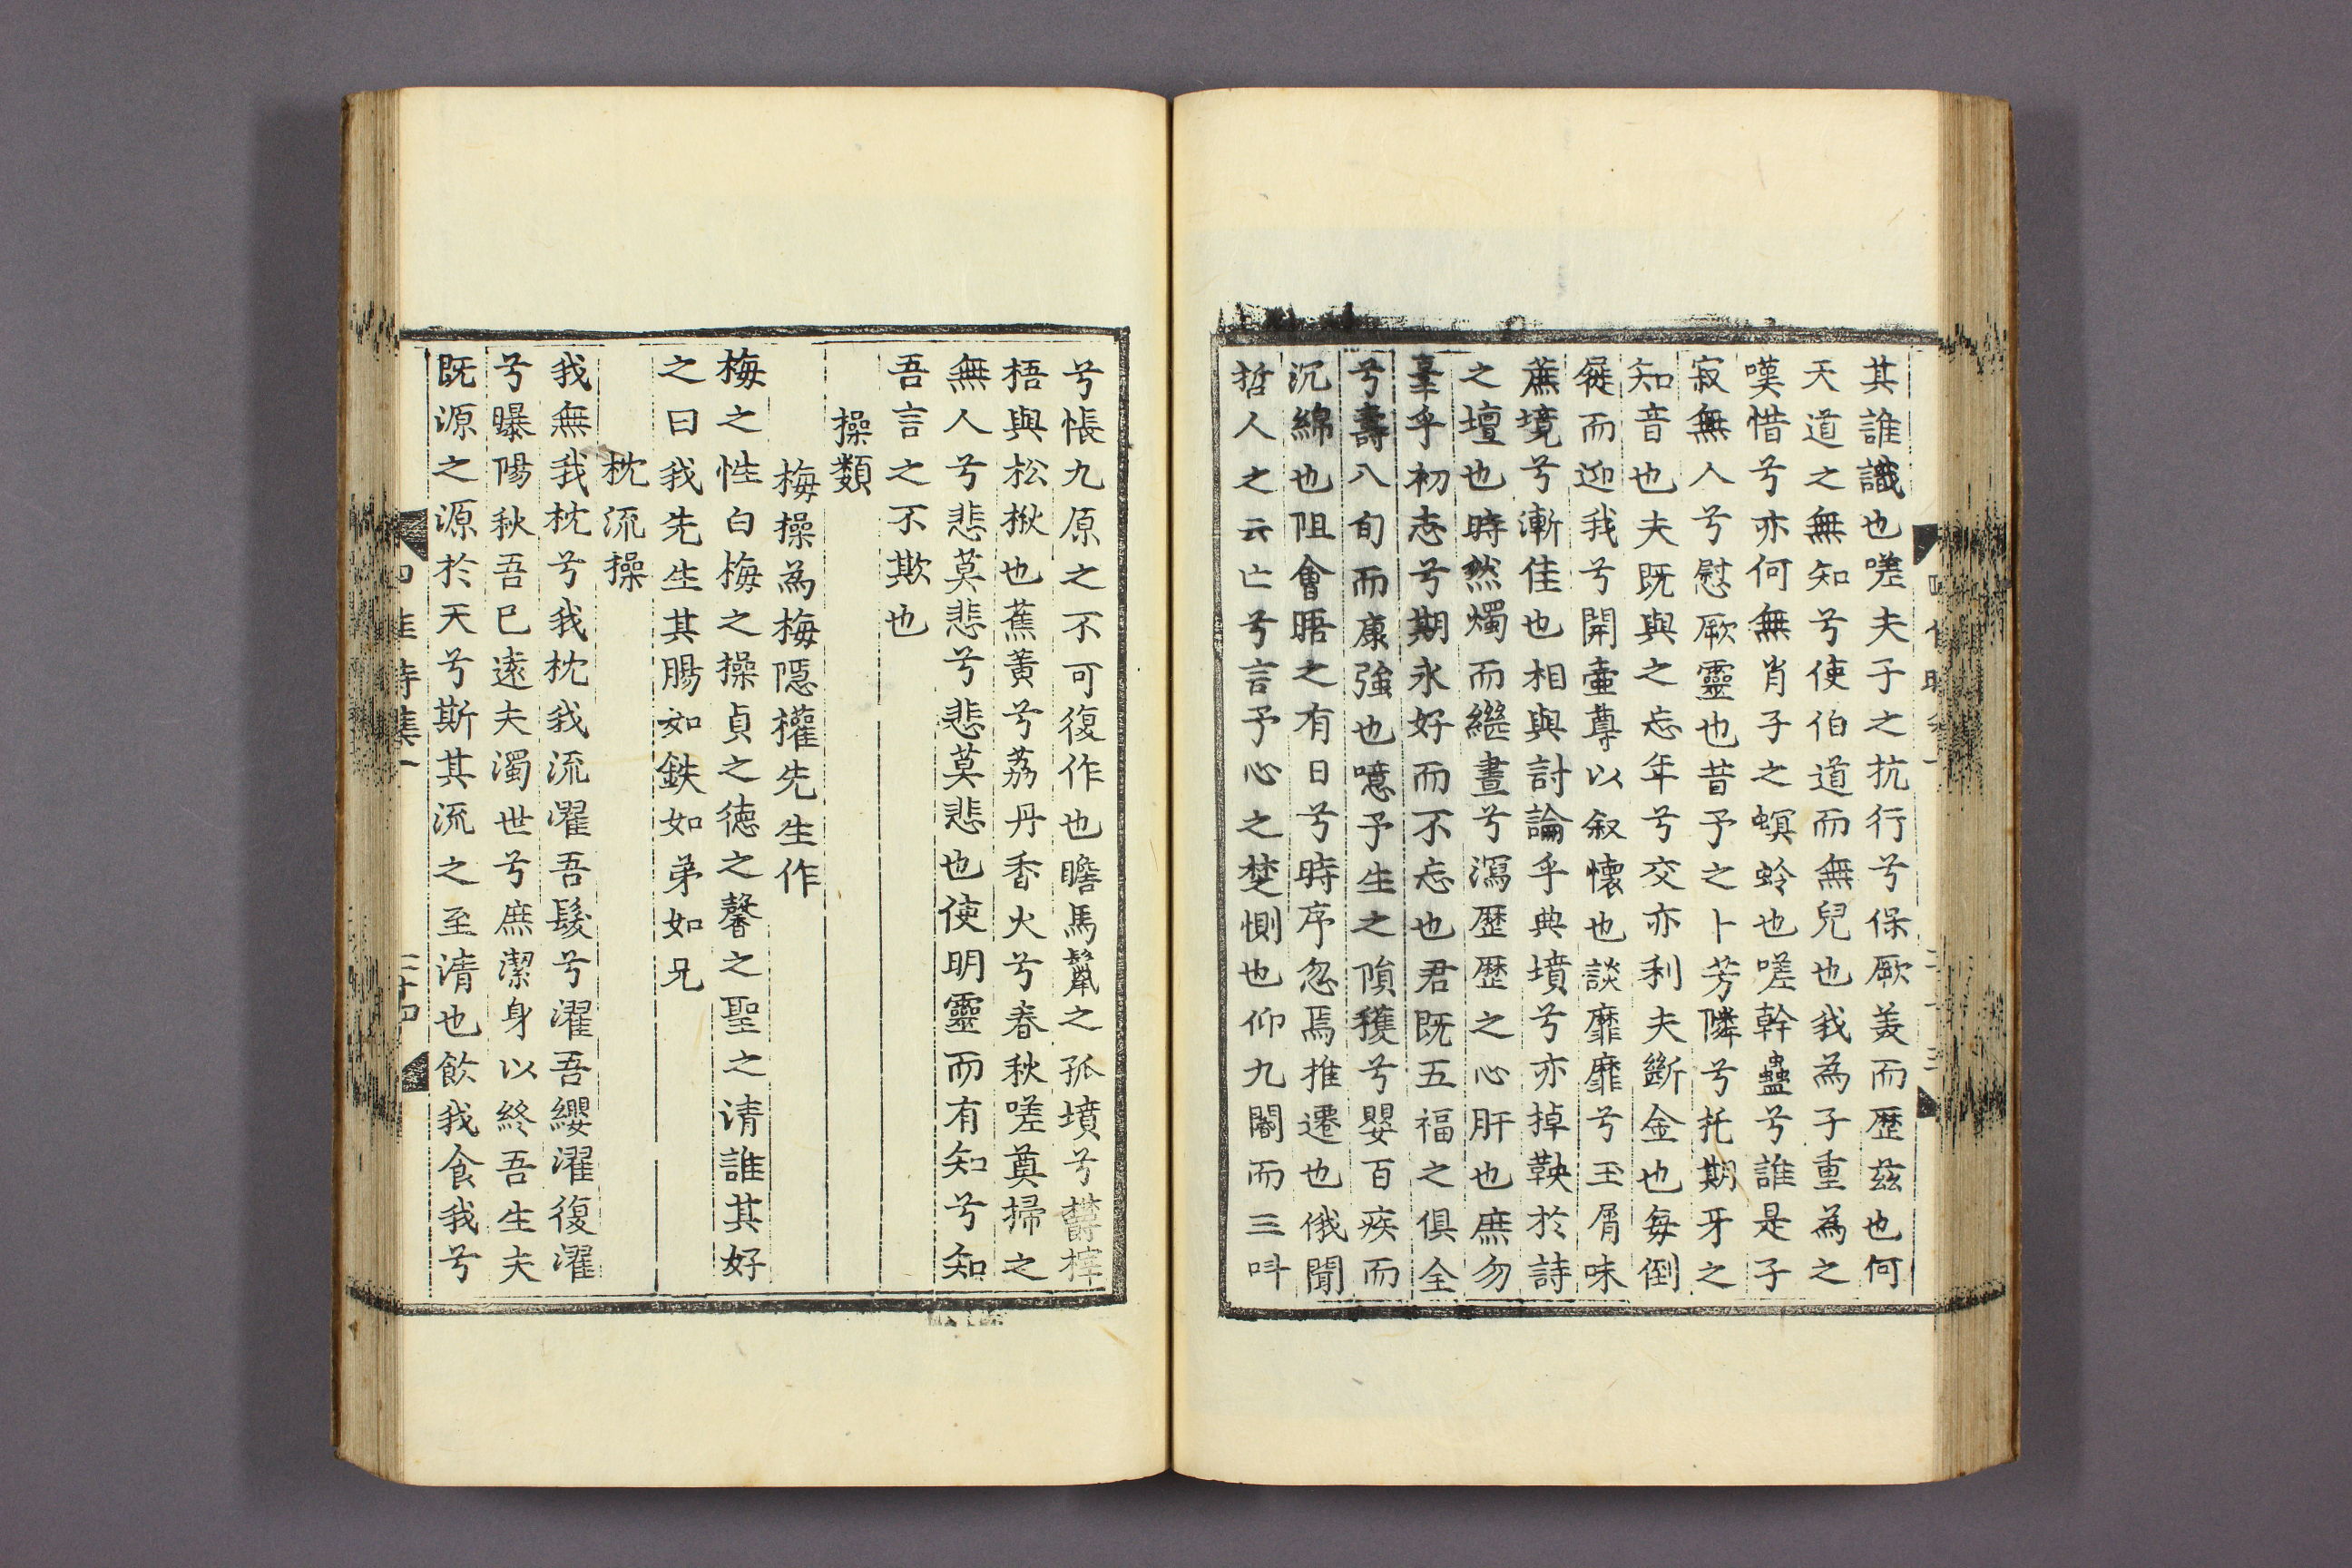 其誰識也嗟夫子之抗行兮保厥美而歷茲也何
天道之無知兮使伯道而無兒也我為子重為之
嘆惜兮亦何無肖子之螟蛉也嗟幹蠱兮誰是子
寂無人兮慰厥靈也昔予之卜芳隣兮托期牙之
知音也夫既與之忘年兮交亦利夫斷金也每倒
屣而迎我兮開壷尊以叙懷也談靡靡兮玉屑味
蔗境兮漸佳也相與討論乎典墳兮亦掉鞅於詩
之壇也時然燭而繼晝兮瀉歷歷之心肝也庶勿
辜乎初志兮期永好而不忘也君既五福之俱全
兮壽八旬而康強也噫予生之隕穫兮嬰百疾而
沉綿也阻會晤之有日兮時序忽焉推遷也俄聞
哲人之云亡兮言予心之楚惻也仰九閽而三呌
兮悵九原之不可復作也瞻馬鬣之孤墳兮欝梓
梧與松楸也蕉黃兮荔丹香火兮春秋嗟奠掃之
無人兮悲莫悲兮悲莫悲也使明靈而有知兮知
吾言之不欺也
操類
梅操為梅隱權先生作
梅之性白梅之操貞之德之馨之聖之清誰其好
之曰我先生其腸如鉄如弟如兄
枕流操
我無我枕兮我枕我流濯吾髮兮濯吾纓濯復濯
兮曝陽秋吾已遠夫濁世兮庶潔身以終吾生夫
既源之源於天兮斯其流之至清也飲我食我兮